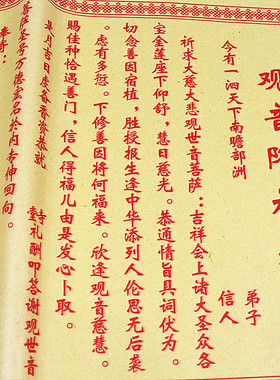 观音
今有一泗天下南瞻部洲
弟子
信人
祈求大慈大悲观世音菩萨：吉祥会上诸大圣众各
宝金莲座下仰舒，慧日慈光。恭通情旨具词伏为。
切念善因宿植，胜授报生逢中华添列人伦思无后袭
。虑有多愆。下修善因将何福来。欣逢观音慈慧。
赐佳种恰遇善门，信人得福儿由是发心卜取。
月吉日虔备香资恭就
寺
堂
礼酬叩答谢观世音
菩萨圣号万德宏名於内专伸回向。